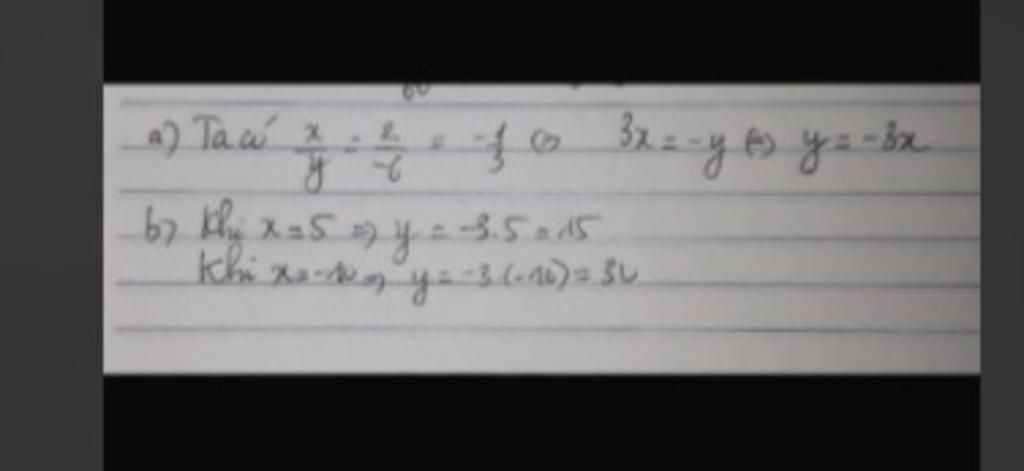 a) Ta có x/y = 2/-6 = -1/3 ⇔ 3x = -y ⇔ y = -3x
b) Khi x = 5 ⇒ y = -3.5 = 15
Khi x = -10 ⇒ y = -3(-10) = 30